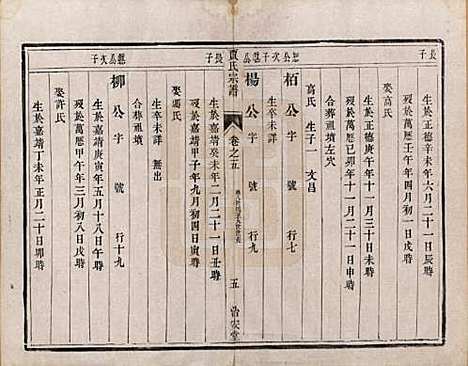 長子
生於正德辛未年六月二十一日辰時
歿於萬歷壬午年十月初四日寅時
娶高氏
生於正德庚午年十一月三十日戌時
歿於萬歷己卯年十一月二十一日申時
合葬祖墳左穴
高氏 生子一 文昌
公次子
栢公字 號 行七
生卒未詳
楊公字 號 行九
賈氏宗譜
卷之五
五
浩安堂
長子
生於嘉靖癸未年二月二十一日丑時
歿於嘉靖甲子年九月初四日寅時
娶馮氏
生卒未詳 無出
合葬祖墳
公次子
柳公字 號 行十九
生於嘉靖庚寅年五月十八日午時
歿於萬歷甲午年三月初八日戌時
娶許氏
生於嘉靖丁未年正月二十日卯時